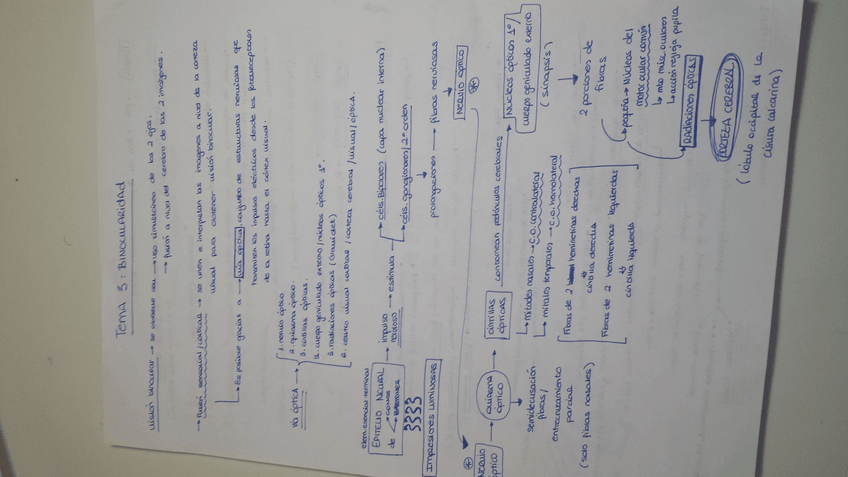 Tema 3: BINOCULARIDAD
Visión binocular → se obtiene → uso simultáneo de los 2 ojos.
→ fusión a nivel del cerebro de las 2 imágenes.
→ Fusión sensorial/cortical → se unen e interpretan las imágenes a nivel de la corteza
visual para obtener visión binocular.
→ Es posible gracias a → vía óptica: conjunto de estructuras nerviosas que
transmiten los impulsos eléctricos desde los fotorreceptores
de la retina hasta el córtex visual.
VIA ÓPTICA →
1. nervio óptico
2. quiasma óptico.
3. cintillas ópticas.
4. cuerpo geniculado externo/núcleos ópticos 1º.
5. radiaciones ópticas (Gratiolet)
6. centro visual cortical / corteza cerebral/visual/óptica.
EPITELIO NEURAL
de
CONOS
BASTONES
→ impulso
nervioso → estimula
→ céls. Bipolares (capa nuclear interna)
→ céls. ganglionares/2º orden
prolongaciones → fibras nerviosas
NERVIO ÓPTICO
IMPRESIONES LUMINOSAS
NERVIO
ÓPTICO
→ QUIASMA
ÓPTICO
semidecusación
fibras/
entrecruzamiento
parcial
(solo fibras nasales)
→ CINTILLAS
ÓPTICAS
contornean pedúnculos cerebrales
→ Mitades nasales → C.O. contralateral
→ mitades temporales → C.O. homolateral
Fibras de 2 hemirretinas derechas
cintilla derecha
Fibras de 2 hemirretinas izquierdas
cintilla izquierda
NÚCLEOS ÓPTICOS 1º/
cuerpo geniculado externo
(sinapsis)
2 porciones de
fibras
→ pequeña → Núcleos del
motor ocular común
→ mto músc. oculares
→ acción refleja pupila
RADIACIONES ÓPTICAS
CORTEZA CEREBRAL
(lóbulo occipital de la
cisura calcarina)